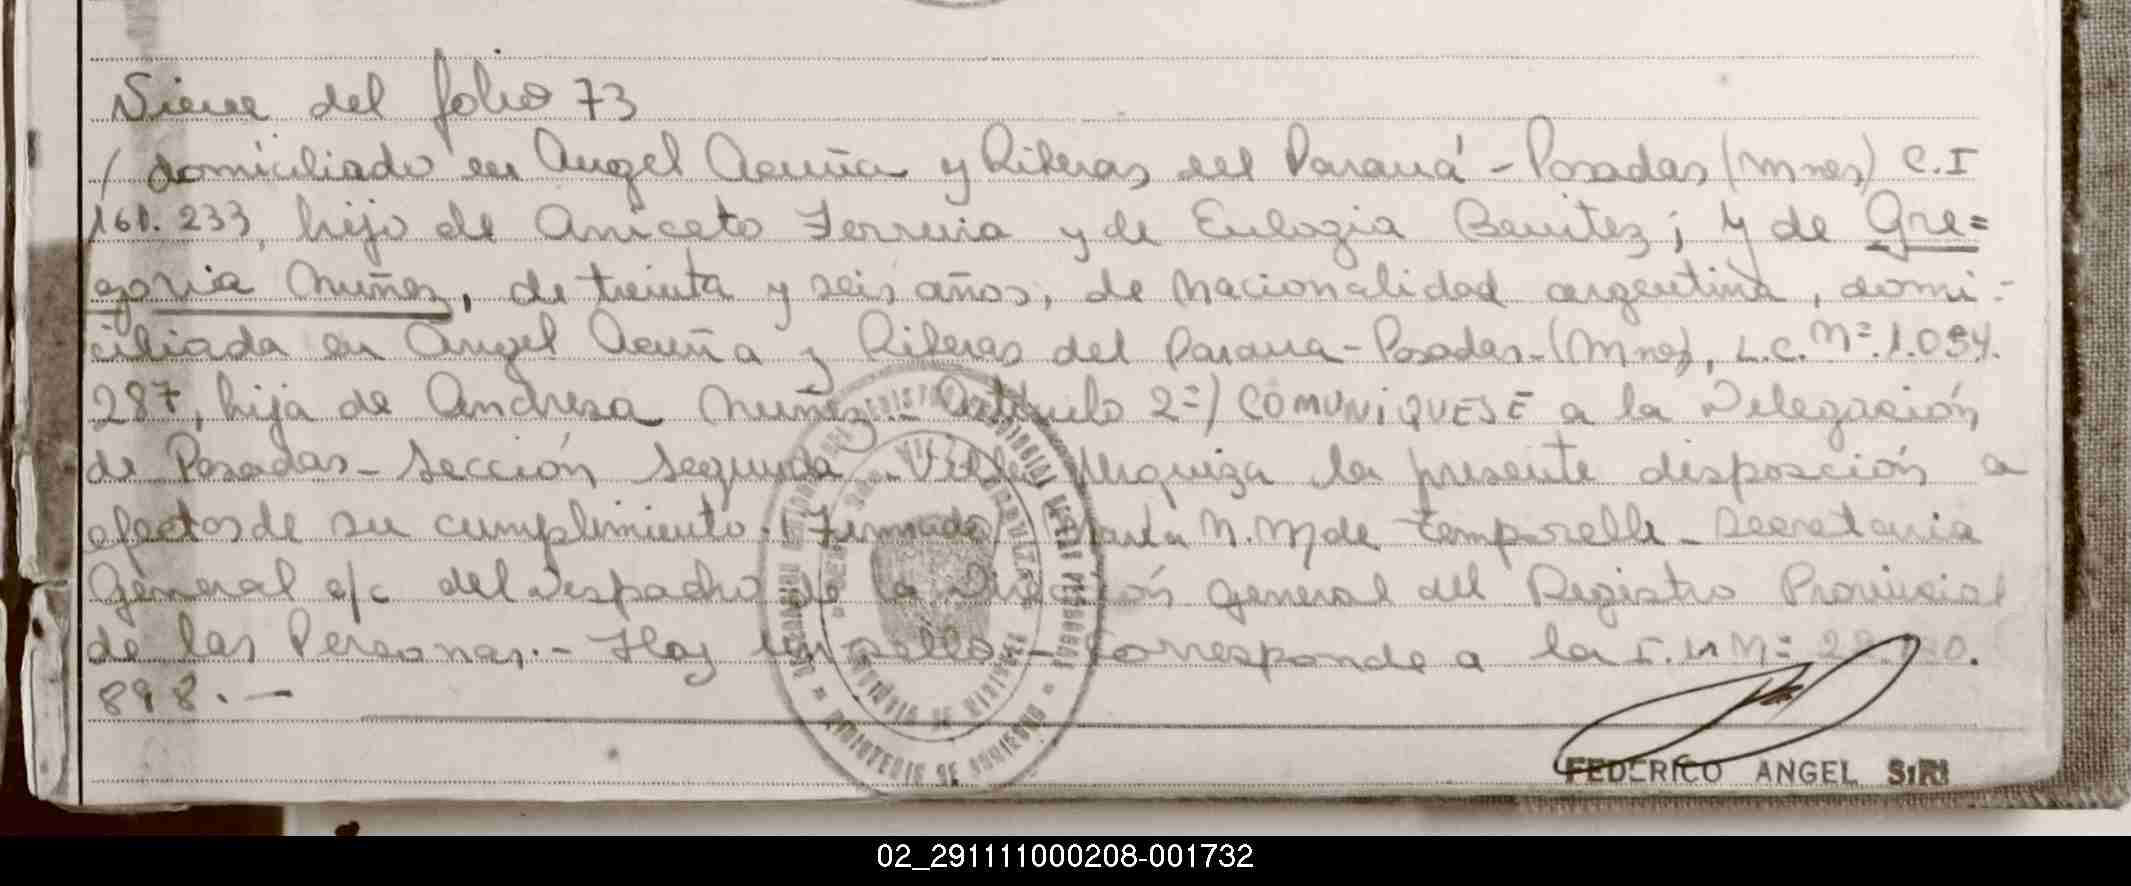 Viene del folio 73
/ domiciliado en Angel Acuña y Riberas del Paraná - Posadas (Mnes) C.I
161.233, hijo de Aniceto Ferreira y de Eulogia Benitez; y de Gre=
goria Nuñez, de treinta y seis años, de nacionalidad argentina, domi-
ciliada en Angel Acuña y Riberas del Parana - Posadas - (Mnes), L.C. Nº. 1.054.
287, hija de Andresa Nuñez.- Artículo 2º) COMUNIQUESE a la Delegación
de Posadas - Sección Segunda - Villa Urquiza la presente disposción a
efectos de su cumplimiento. Firmado Marta N. M de Temporelli - Secretaria
General a/c del Despacho de la Dirección General del Registro Provincial
de las Personas.- Hay un sello - Corresponde a la Nº
898.-
MINISTERIO DE GOBIERNO
PROVINCIA DE MISIONES
FEDERICO ANGEL SIRI
02_291111000208-001732